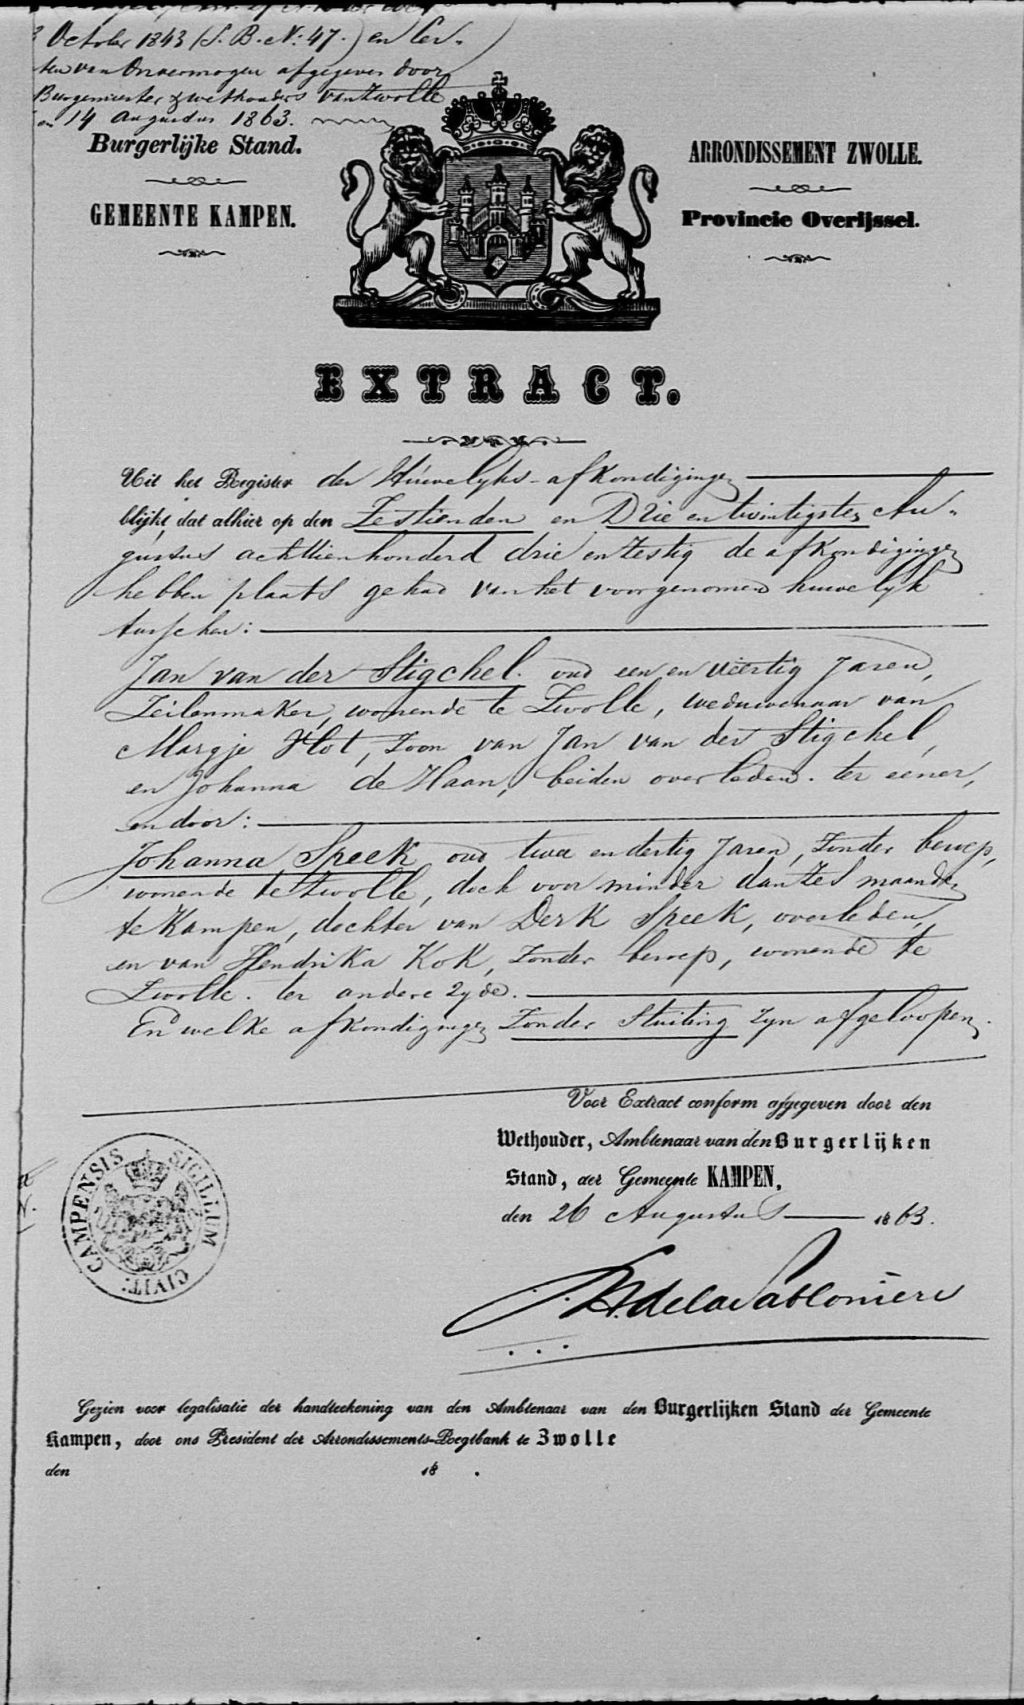 October 1843 (S. B. N: 47.) en Cer-
van Onvermogen afgegeven door
Burgemeester & wethouders van Zwolle
14 Augustus 1863.
Burgerlijke Stand.
GEMEENTE KAMPEN.
ARRONDISSEMENT ZWOLLE.
Provincie Overijssel.
EXTRACT.
Uit het Register der Huwelyks-afkondigingen
blijkt dat alhier op den Zestienden en Drie en twintigsten Au-
gustus achttien honderd drie en zestig de afkondigingen
hebben plaats gehad van het voorgenomen huwelyk
tusschen:
Jan van der Stigchel. oud een en veertig Jaren,
Zeilenmaker, wonende te Zwolle, weduwenaar van
Margje Hot, Zoon van Jan van der Stigchel,
en Johanna de Haan, beiden overleden. ter eener,
en door:
Johanna Speek oud twee en dertig Jaren, Zonder beroep,
wonende te Zwolle, doch voor minder dan zes maanden
te Kampen, dochter van Derk Speek, overleden,
en van Hendrika Kok, Zonder beroep, wonende te
Zwolle. ter andere Zyde.
En welke afkondigingen Zonder Stuiting Zyn afgeloopen.
Voor Extract conform afgegeven door den
Wethouder, Ambtenaar van den Burgerlijken
Stand, der Gemeente KAMPEN,
den 26 Augustus 1863.
SIGILLUM CIVIT: CAMPENSIS
Gezien voor legalisatie der handteekening van den Ambtenaar van den Burgerlijken Stand der Gemeente
Kampen, door ons President der Arrondissements-Regtbank te Zwolle
den 18 .